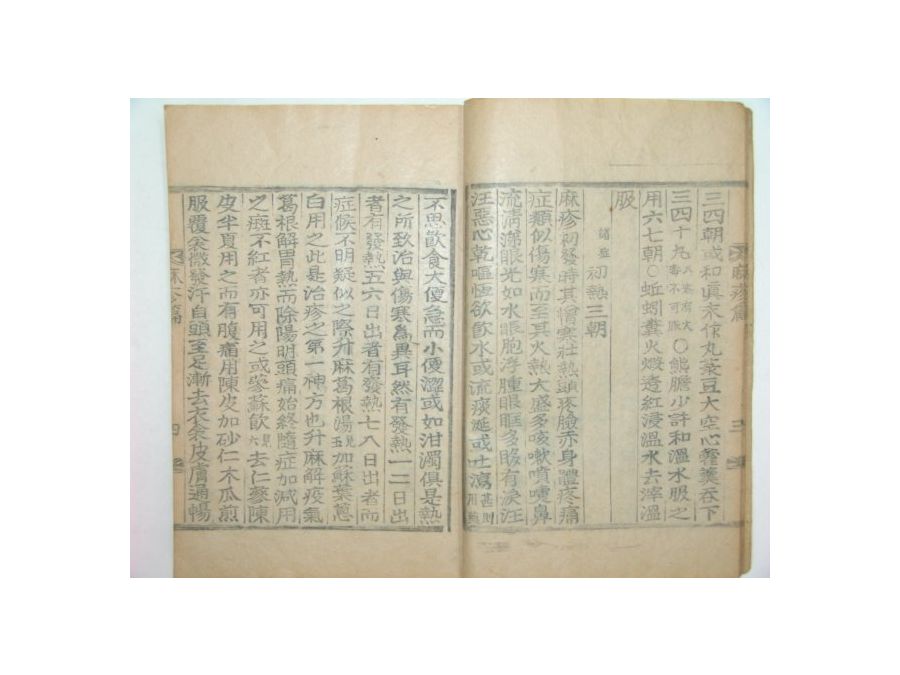 三四朝或和眞末作丸菉豆大空心薑湯呑下
三四十丸 ○熊膽少許和溫水服之
用六七朝○蚯蚓糞火煆造紅浸溫水去滓溫
服
諸症 初熱三朝
麻疹初發時其憎寒壯熱頭疼臉赤身體疼痛
症類似傷寒而至其火熱大盛多咳嗽噴嚏鼻
流淸涕眼光如水眼胞浮腫眼眶多眵有淚汪
汪惡心乾嘔恒欲飮水或流痰涎或吐瀉甚則
不思飮食大便急而小便澀或如泔濁俱是熱
之所致治與傷寒爲異耳然有發熱一二日出
者有發熱五六日出者有發熱七八日出者而
症候不明疑似之際升麻葛根湯見五加蘇葉葱
白用之此是治疹之第一神方也升麻解疫氣
葛根解胃熱而除陽明頭痛始終隨症加減用
之斑不紅者亦可用之或蔘蘇飮見六去仁蔘陳
皮半夏用之而有腹痛用陳皮加砂仁木瓜煎
服覆衾微發汗自頭至足漸去衣衾皮膚通暢
麻疹篇 三
麻疹篇 四